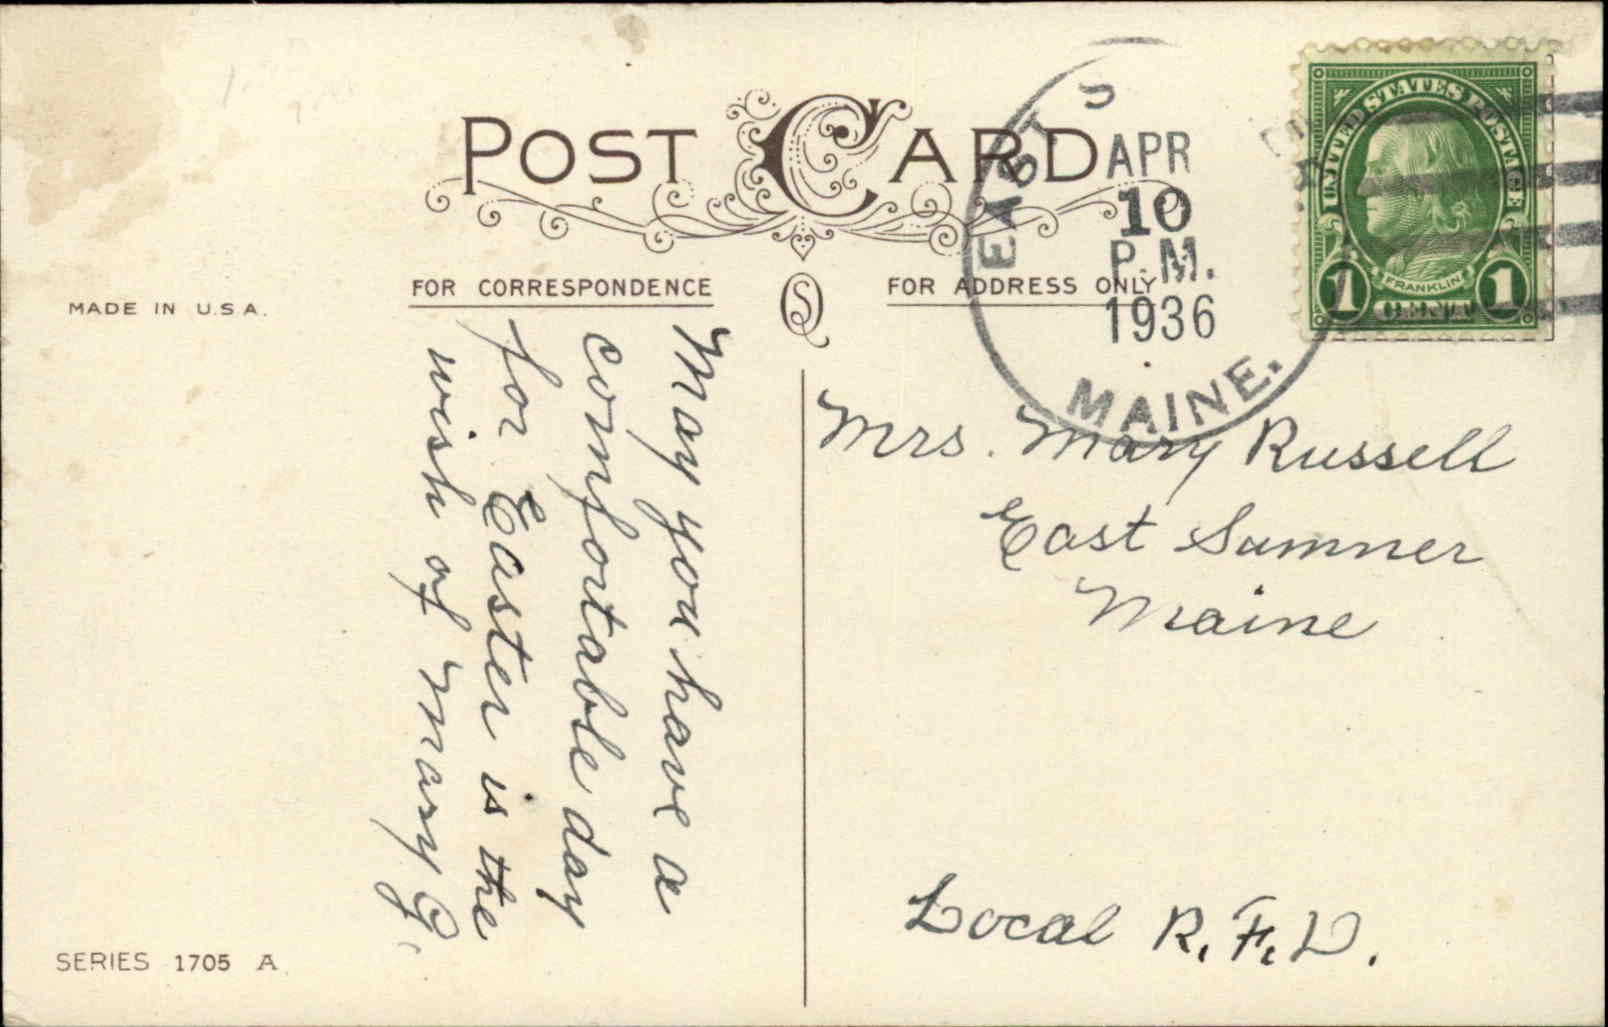 POST CARD
MADE IN U.S.A.
FOR CORRESPONDENCE
FOR ADDRESS ONLY
EAST
APR
10
P.M.
1936
MAINE.
UNITED STATES POSTAGE
FRANKLIN
1 CENT 1
May you have a
comfortable day
for Easter is the
wish of Mary G.
Mrs. Mary Russell
East Sumner
Maine
Local R.F.D.
SERIES 1705 A